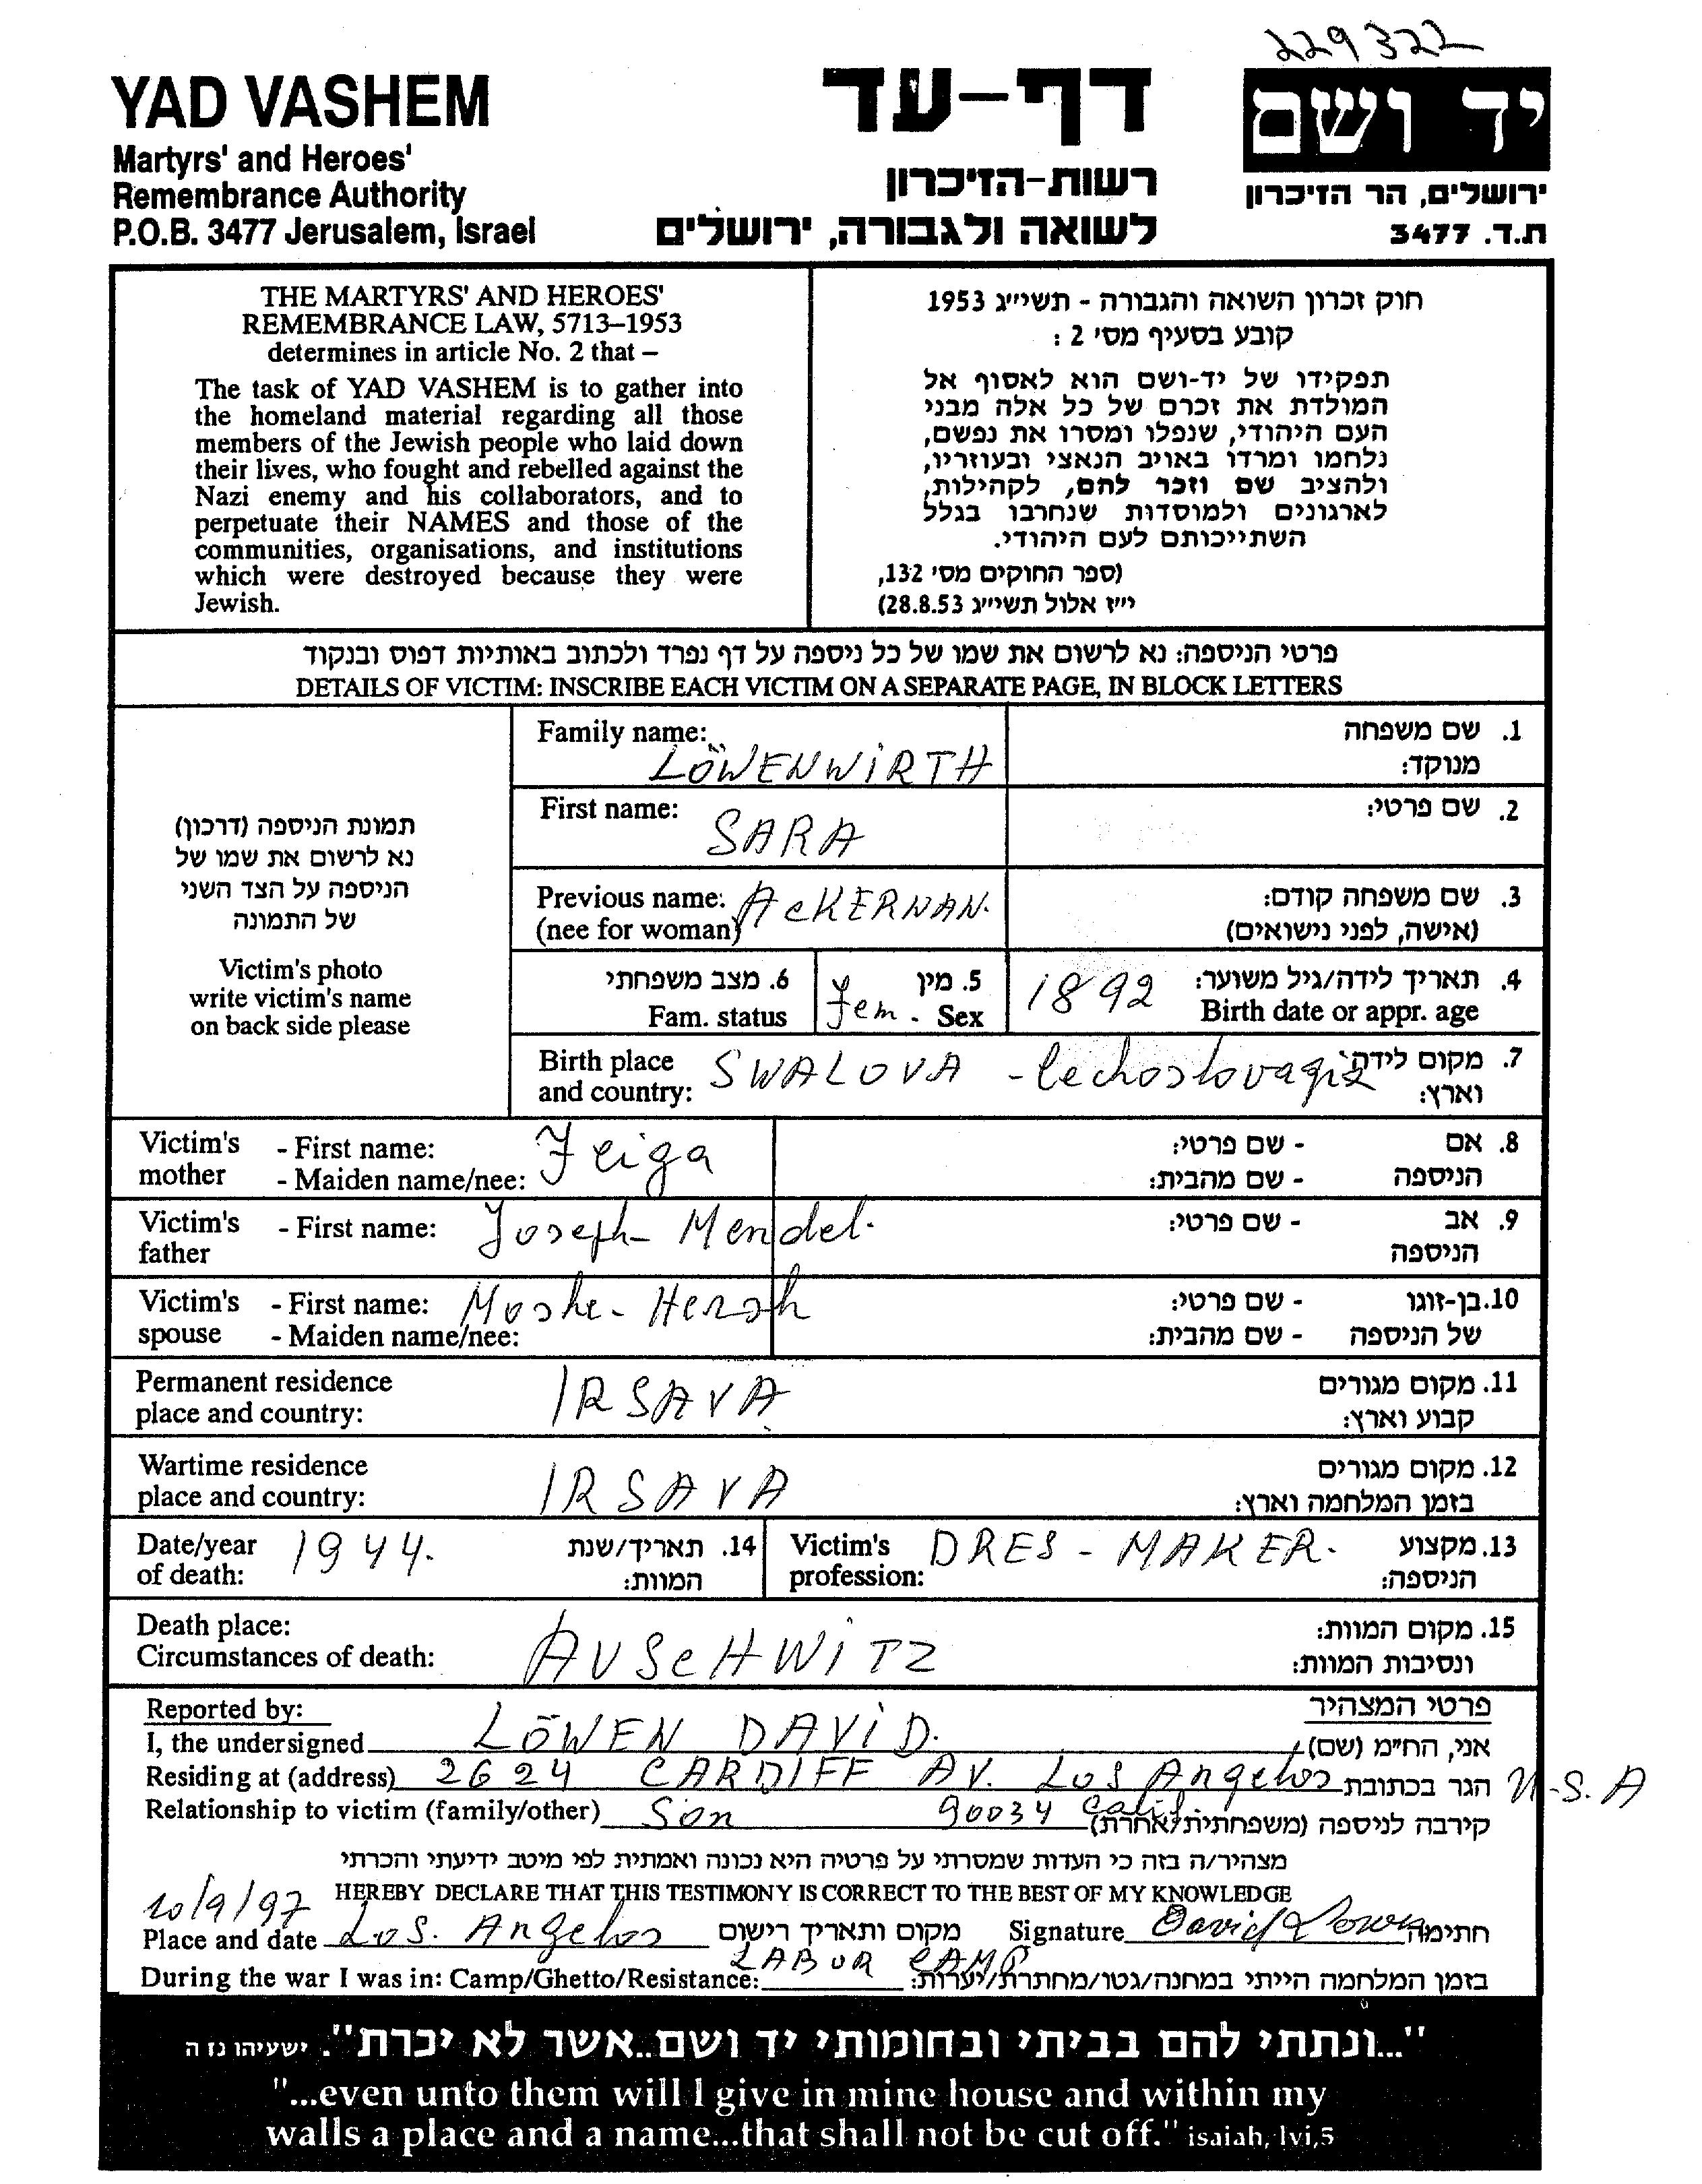 229322
YAD VASHEM
Martyrs' and Heroes'
Remembrance Authority
P.O.B. 3477 Jerusalem, Israel
דף-עד
רשות-הזיכרון
לשואה ולגבורה, ירושלים
יד ושם
ירושלים, הר הזיכרון
ת.ד. 3477
THE MARTYRS' AND HEROES'
REMEMBRANCE LAW, 5713–1953
determines in article No. 2 that –
The task of YAD VASHEM is to gather into
the homeland material regarding all those
members of the Jewish people who laid down
their lives, who fought and rebelled against the
Nazi enemy and his collaborators, and to
perpetuate their NAMES and those of the
communities, organisations, and institutions
which were destroyed because they were
Jewish.
חוק זכרון השואה והגבורה - תשי״ג 1953
קובע בסעיף מס' 2 :
תפקידו של יד-ושם הוא לאסוף אל
המולדת את זכרם של כל אלה מבני
העם היהודי, שנפלו ומסרו את נפשם,
נלחמו ומרדו באויב הנאצי ובעוזריו,
ולהציב שם וזכר להם, לקהילות,
לארגונים ולמוסדות שנחרבו בגלל
השתייכותם לעם היהודי.
(ספר החוקים מס' 132,
י״ז אלול תשי״ג 28.8.53)
פרטי הניספה: נא לרשום את שמו של כל ניספה על דף נפרד ולכתוב באותיות דפוס ובנקוד
DETAILS OF VICTIM: INSCRIBE EACH VICTIM ON A SEPARATE PAGE, IN BLOCK LETTERS
תמונת הניספה (דרכון)
נא לרשום את שמו של
הניספה על הצד השני
של התמונה
Victim's photo
write victim's name
on back side please
Family name: LÖWENWIRTH 1. שם משפחה
מנוקד:
First name: SARA 2. שם פרטי:
Previous name: ACKERNAN. 3. שם משפחה קודם:
(nee for woman) (אישה, לפני נישואים)
6. מצב משפחתי 5. מין 1892 4. תאריך לידה/גיל משוער:
Fam. status fem. Sex Birth date or appr. age
Birth place SWALOVA - Cechoslovaqia 7. מקום לידה
and country: וארץ:
Victim's - First name: Feiga - שם פרטי: 8. אם
mother - Maiden name/nee: - שם מהבית: הניספה
Victim's - First name: Joseph- Mendel. - שם פרטי: 9. אב
father הניספה
Victim's - First name: Moshe- Hersh - שם פרטי: 10. בן-זוגו
spouse - Maiden name/nee: - שם מהבית: של הניספה
Permanent residence IRSAVA 11. מקום מגורים
place and country: קבוע וארץ:
Wartime residence IRSAVA 12. מקום מגורים
place and country: בזמן המלחמה וארץ:
Date/year 1944. 14. תאריך/שנת Victim's DRES - MAKER. 13. מקצוע
of death: המוות: profession: הניספה:
Death place: 15. מקום המוות:
Circumstances of death: AUSCHWITZ ונסיבות המוות:
Reported by: פרטי המצהיר
I, the undersigned LÖWEN DAVID. אני, הח״מ (שם)
Residing at (address) 2624 CARDIFF AV. Los Angelos הגר בכתובת U.S.A
Relationship to victim (family/other) Son 90034 Calif. קירבה לניספה (משפחתית/אחרת)
מצהיר/ה בזה כי העדות שמסרתי על פרטיה היא נכונה ואמתית לפי מיטב ידיעתי והכרתי
HEREBY DECLARE THAT THIS TESTIMONY IS CORRECT TO THE BEST OF MY KNOWLEDGE
10/9/97
Place and date Los. Angelos מקום ותאריך רישום Signature David Lowen חתימה
During the war I was in: Camp/Ghetto/Resistance: LABUR CAMP בזמן המלחמה הייתי במחנה/גטו/מחתרת/יערות:
"...ונתתי להם בביתי ובחומותי יד ושם..אשר לא יכרת". ישעיהו נז ה
"...even unto them will I give in mine house and within my
walls a place and a name...that shall not be cut off." isaiah, lvi,5